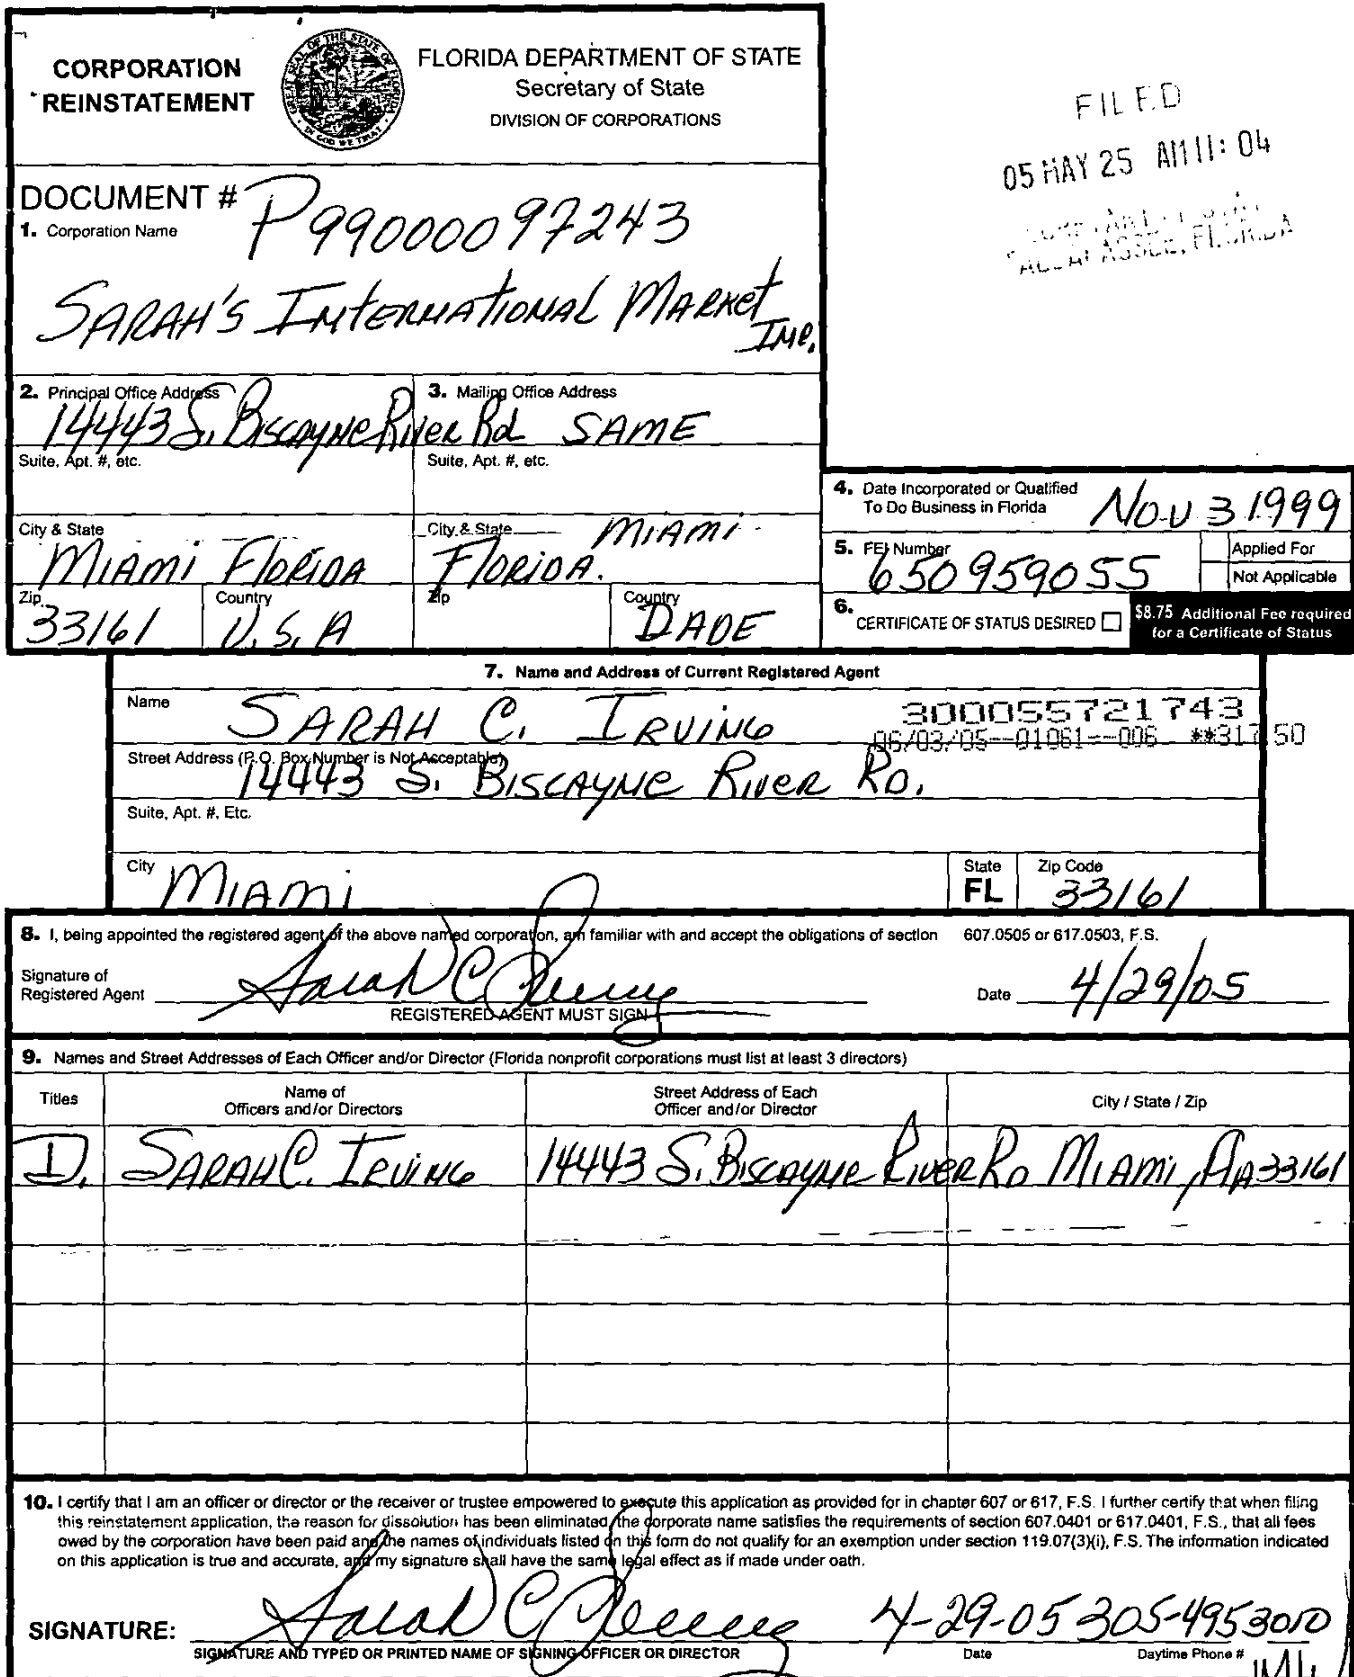 CORPORATION
REINSTATEMENT
FLORIDA DEPARTMENT OF STATE
Secretary of State
DIVISION OF CORPORATIONS
GREAT SEAL OF THE STATE OF FLORIDA
IN GOD WE TRUST
FILED
05 MAY 25 AM 11: 04
TALLAHASSEE, FLORIDA
DOCUMENT # P99000097243
1. Corporation Name
SARAH'S INTERNATIONAL MARKET
INC.
2. Principal Office Address
14443 S. BISCAYNE RIVER Rd
3. Mailing Office Address
SAME
Suite, Apt. #, etc.
Suite, Apt. #, etc.
City & State
MIAMI FLORIDA
City & State MIAMI
FLORIDA.
Zip
33161
Country
U.S.A
Zip
Country
DADE
4. Date Incorporated or Qualified
To Do Business in Florida
NOV 3 1999
5. FEI Number
650959055
Applied For
Not Applicable
6.
CERTIFICATE OF STATUS DESIRED
$8.75 Additional Fee required
for a Certificate of Status
7. Name and Address of Current Registered Agent
Name
SARAH C. IRVING
300055721743
06/03/05--01061--006 **317.50
Street Address (P.O. Box Number is Not Acceptable)
14443 S. BISCAYNE RIVER RD.
Suite, Apt. #, Etc.
City
MIAMI
State
FL
Zip Code
33161
8. I, being appointed the registered agent of the above named corporation, am familiar with and accept the obligations of section 607.0505 or 617.0503, F.S.
Signature of
Registered Agent
Sarah C Irving
REGISTERED AGENT MUST SIGN
Date 4/29/05
9. Names and Street Addresses of Each Officer and/or Director (Florida nonprofit corporations must list at least 3 directors)
Titles
Name of
Officers and/or Directors
Street Address of Each
Officer and/or Director
City / State / Zip
D. SARAH C. IRVING 14443 S. BISCAYNE RIVER RD MIAMI, FlA 33161
10. I certify that I am an officer or director or the receiver or trustee empowered to execute this application as provided for in chapter 607 or 617, F.S. I further certify that when filing
this reinstatement application, the reason for dissolution has been eliminated, the corporate name satisfies the requirements of section 607.0401 or 617.0401, F.S., that all fees
owed by the corporation have been paid and the names of individuals listed on this form do not qualify for an exemption under section 119.07(3)(i), F.S. The information indicated
on this application is true and accurate, and my signature shall have the same legal effect as if made under oath.
SIGNATURE: Sarah C Irving 4-29-05 305-4953010
SIGNATURE AND TYPED OR PRINTED NAME OF SIGNING OFFICER OR DIRECTOR
Date
Daytime Phone #